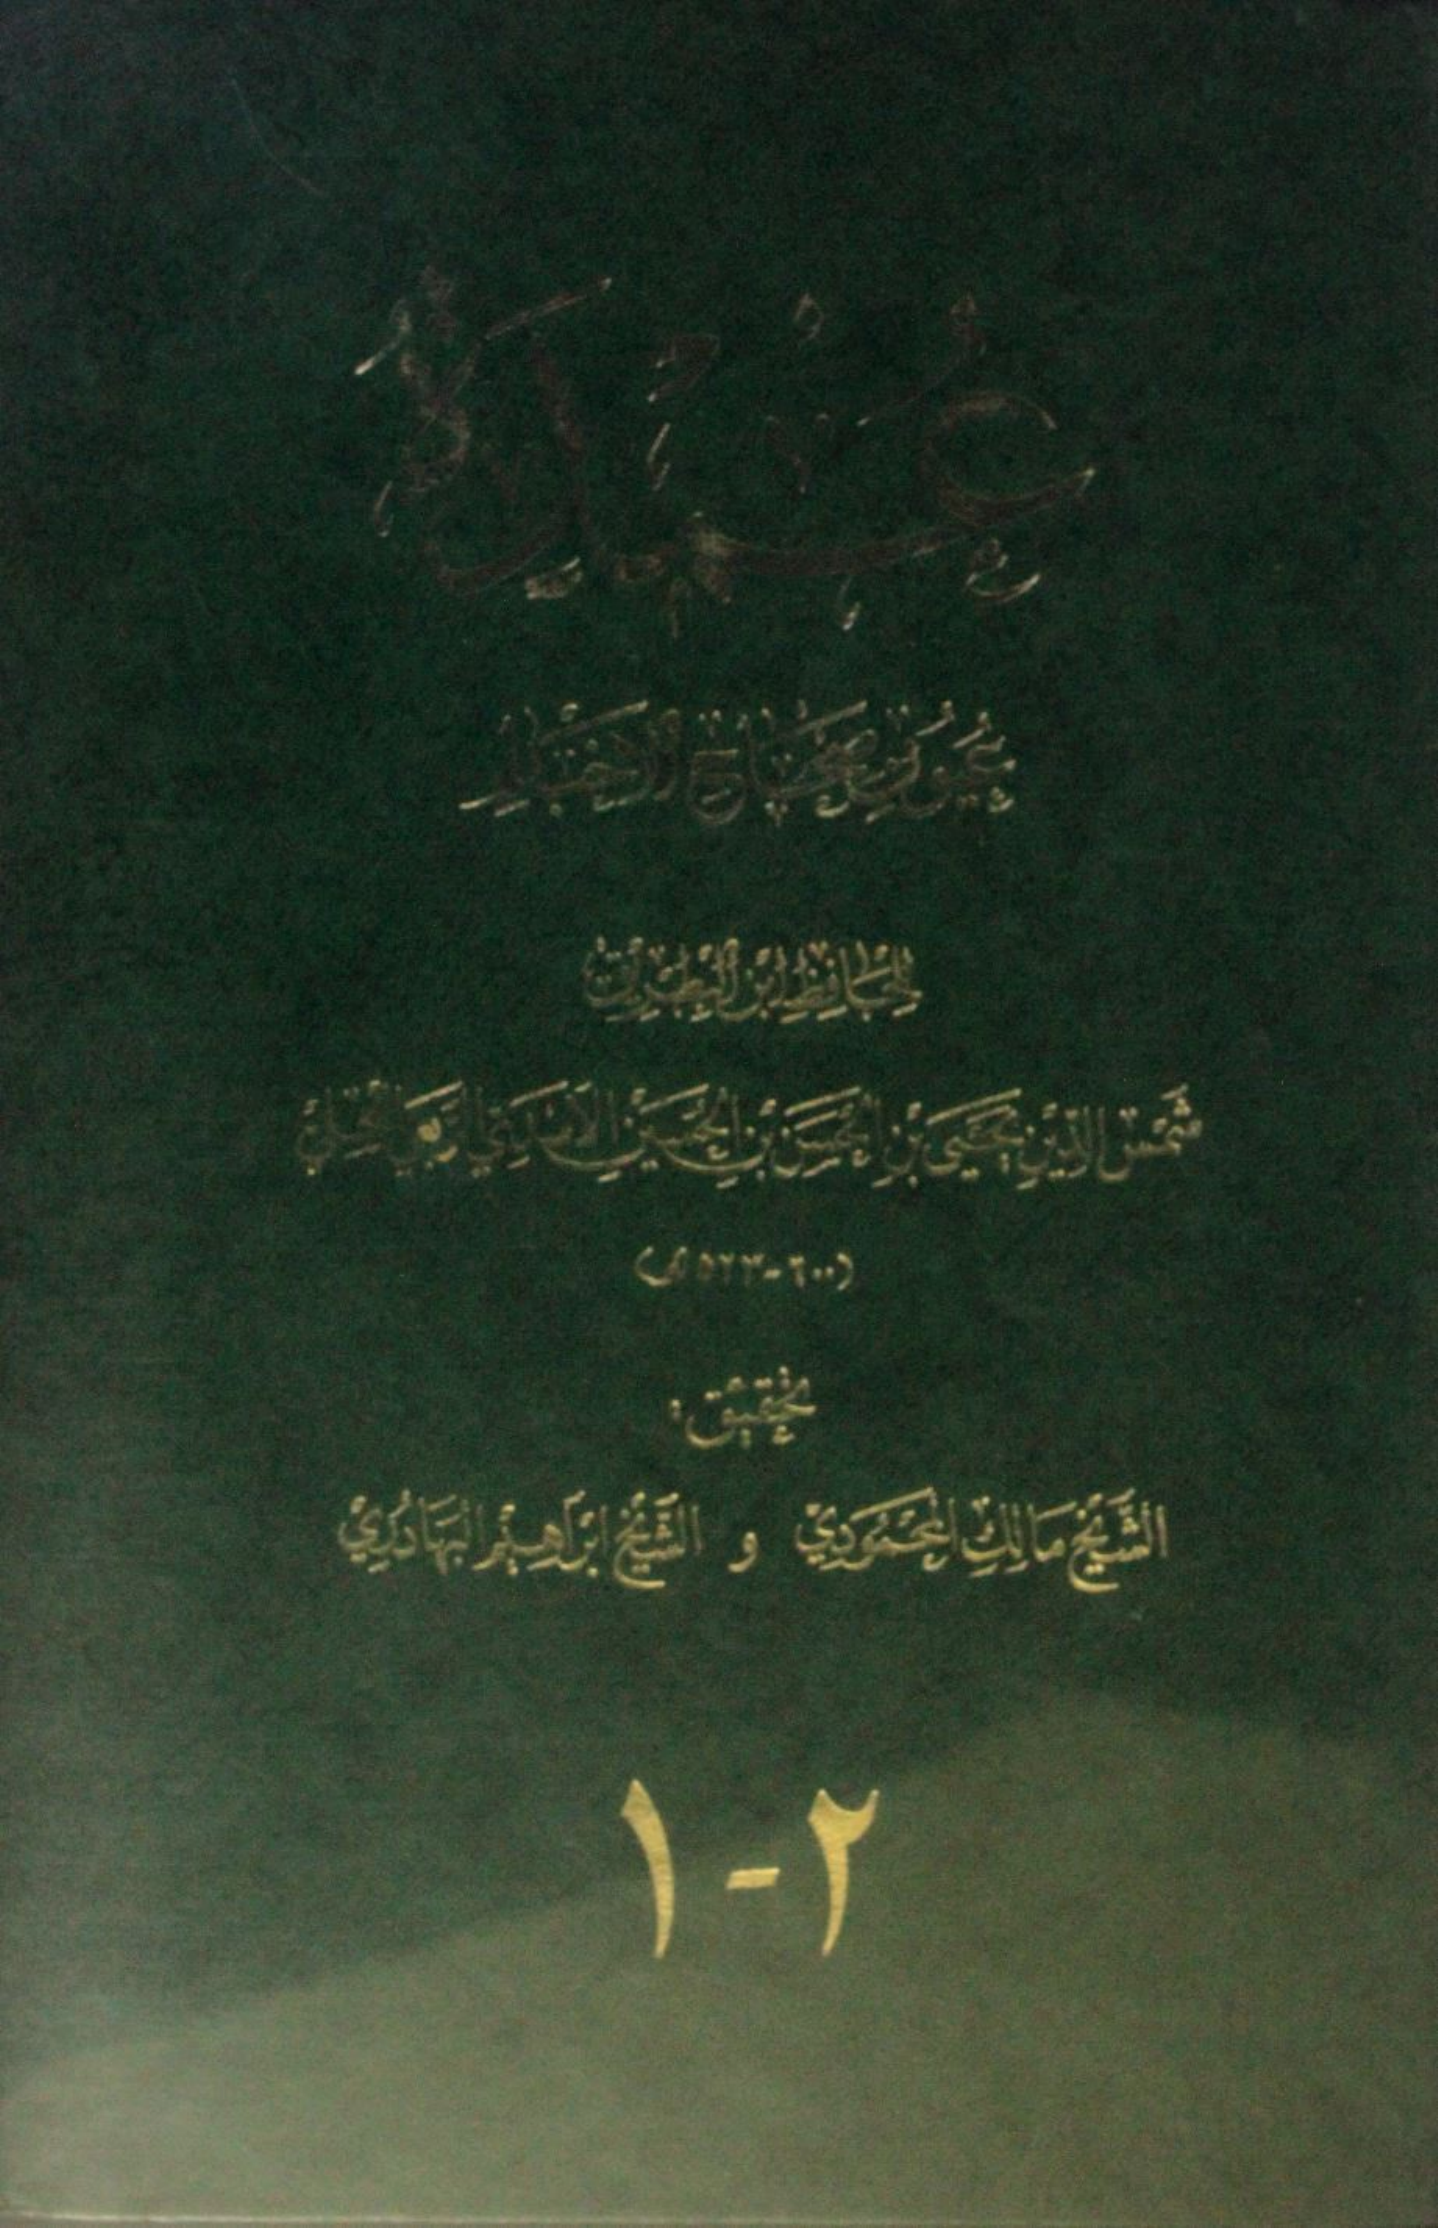 عمدة
عُيُونِ صِحَاحِ الأَخْبَارِ
لِلْحَافِظِ ابْنِ الْبِطْرِيقِ
شَمْسِ الدِّيْنِ يَحْيَى بْنِ الْحَسَنِ بْنِ الْحُسَيْنِ الأَسَدِيِّ الرَّبَعِيِّ الْحِلِّيِّ
(٥٢٣-٦٠٠ هـ)
تحقيق:
الشَّيْخ مَالِك الْمَحْمُودِيْ و الشَّيْخ ابْرَاهِيْم الْبَهَادُرِيْ
١-٢